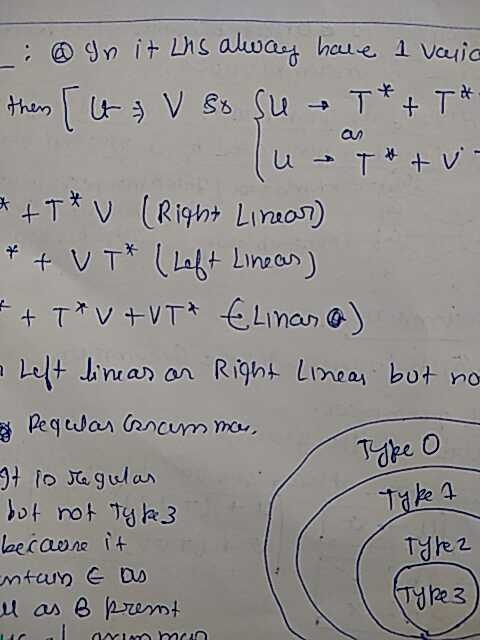 : ⓐ In it LHS always have 1 Varia
then [ U → V so { U → T* + T*
or
U → T* + V
* + T* V (Right Linear)
* + V T* (Left Linear)
* + T* V + VT* ∈ Linear)
Left linear or Right Linear but no
Regular Grammar.
It is regular
but not Type3
because it
ontain ∈ as
as B premt
grammar
Type 0
Type 1
Type 2
Type 3